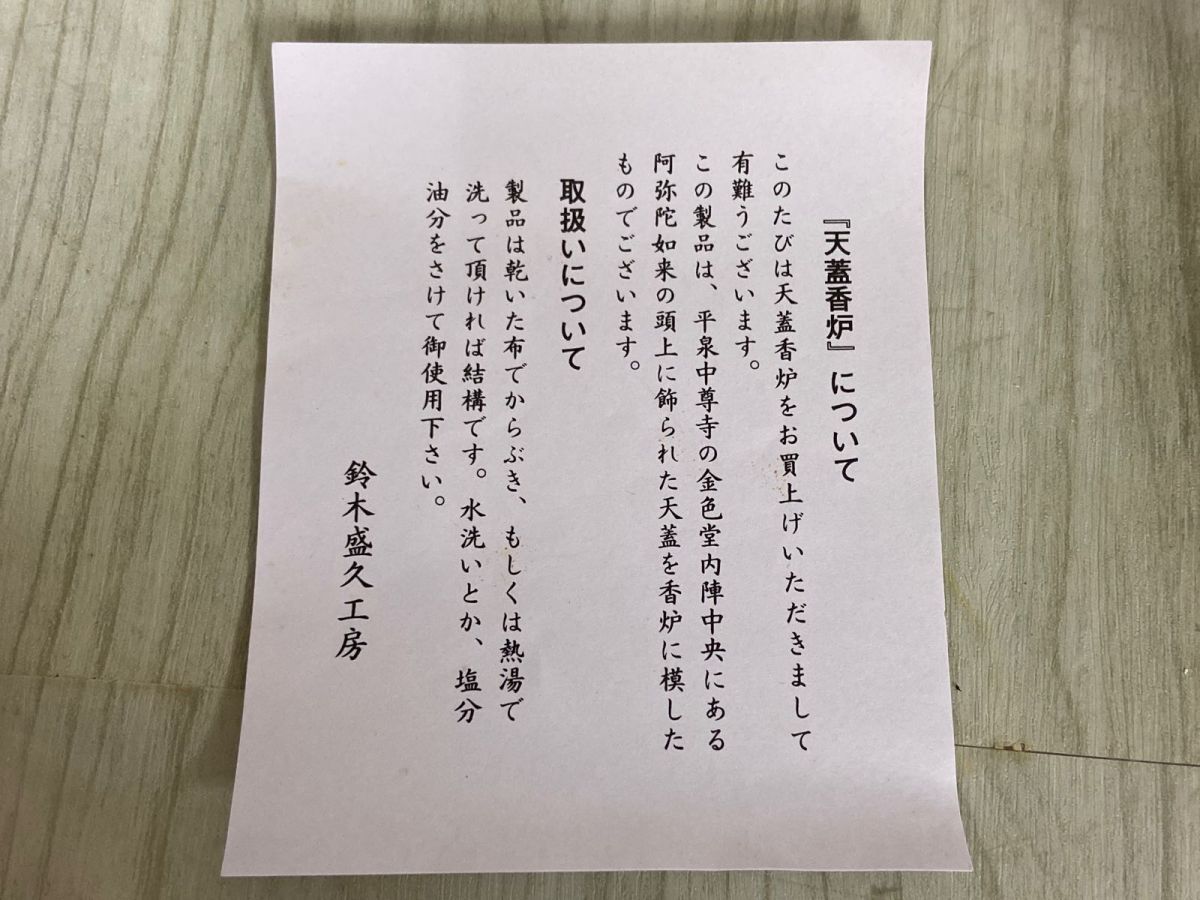 『天蓋香炉』について
このたびは天蓋香炉をお買上げいただきまして
有難うございます。
この製品は、平泉中尊寺の金色堂内陣中央にある
阿弥陀如来の頭上に飾られた天蓋を香炉に模した
ものでございます。
取扱いについて
製品は乾いた布でからぶき、もしくは熱湯で
洗って頂ければ結構です。水洗いとか、塩分
油分をさけて御使用下さい。
鈴木盛久工房